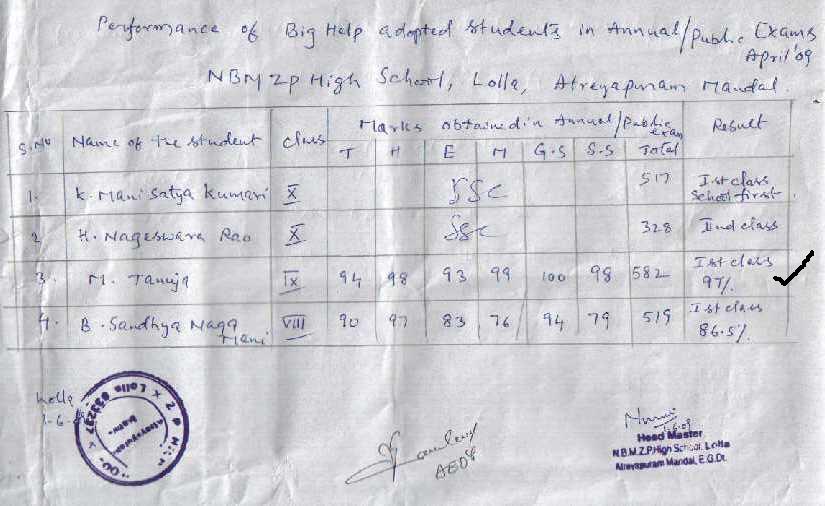 Performance of Big Help adopted students in Annual/Public Exams
April'09
NBMZP High School, Lolla, Atreyapuram Mandal.
S.No Name of the student Class Marks obtained in Annual/Public exam Result
T H E M G.S S.S Total
1. K. Mani Satya Kumari X SSC 517 Ist class School first.
2 H. Nageswara Rao X SSC 328 IInd class
3. M. Tanuja IX 94 98 93 99 100 98 582 Ist class 97%. ✓
4. B. Sandhya Naga Mani VIII 90 97 83 76 94 79 519 Ist class 86.5%.
Lolla
Lolla 533237
1-6-09
Head Master
N.B.M.Z.P.High School, Lolla
Atreyapuram Mandal, E.G.Dt.